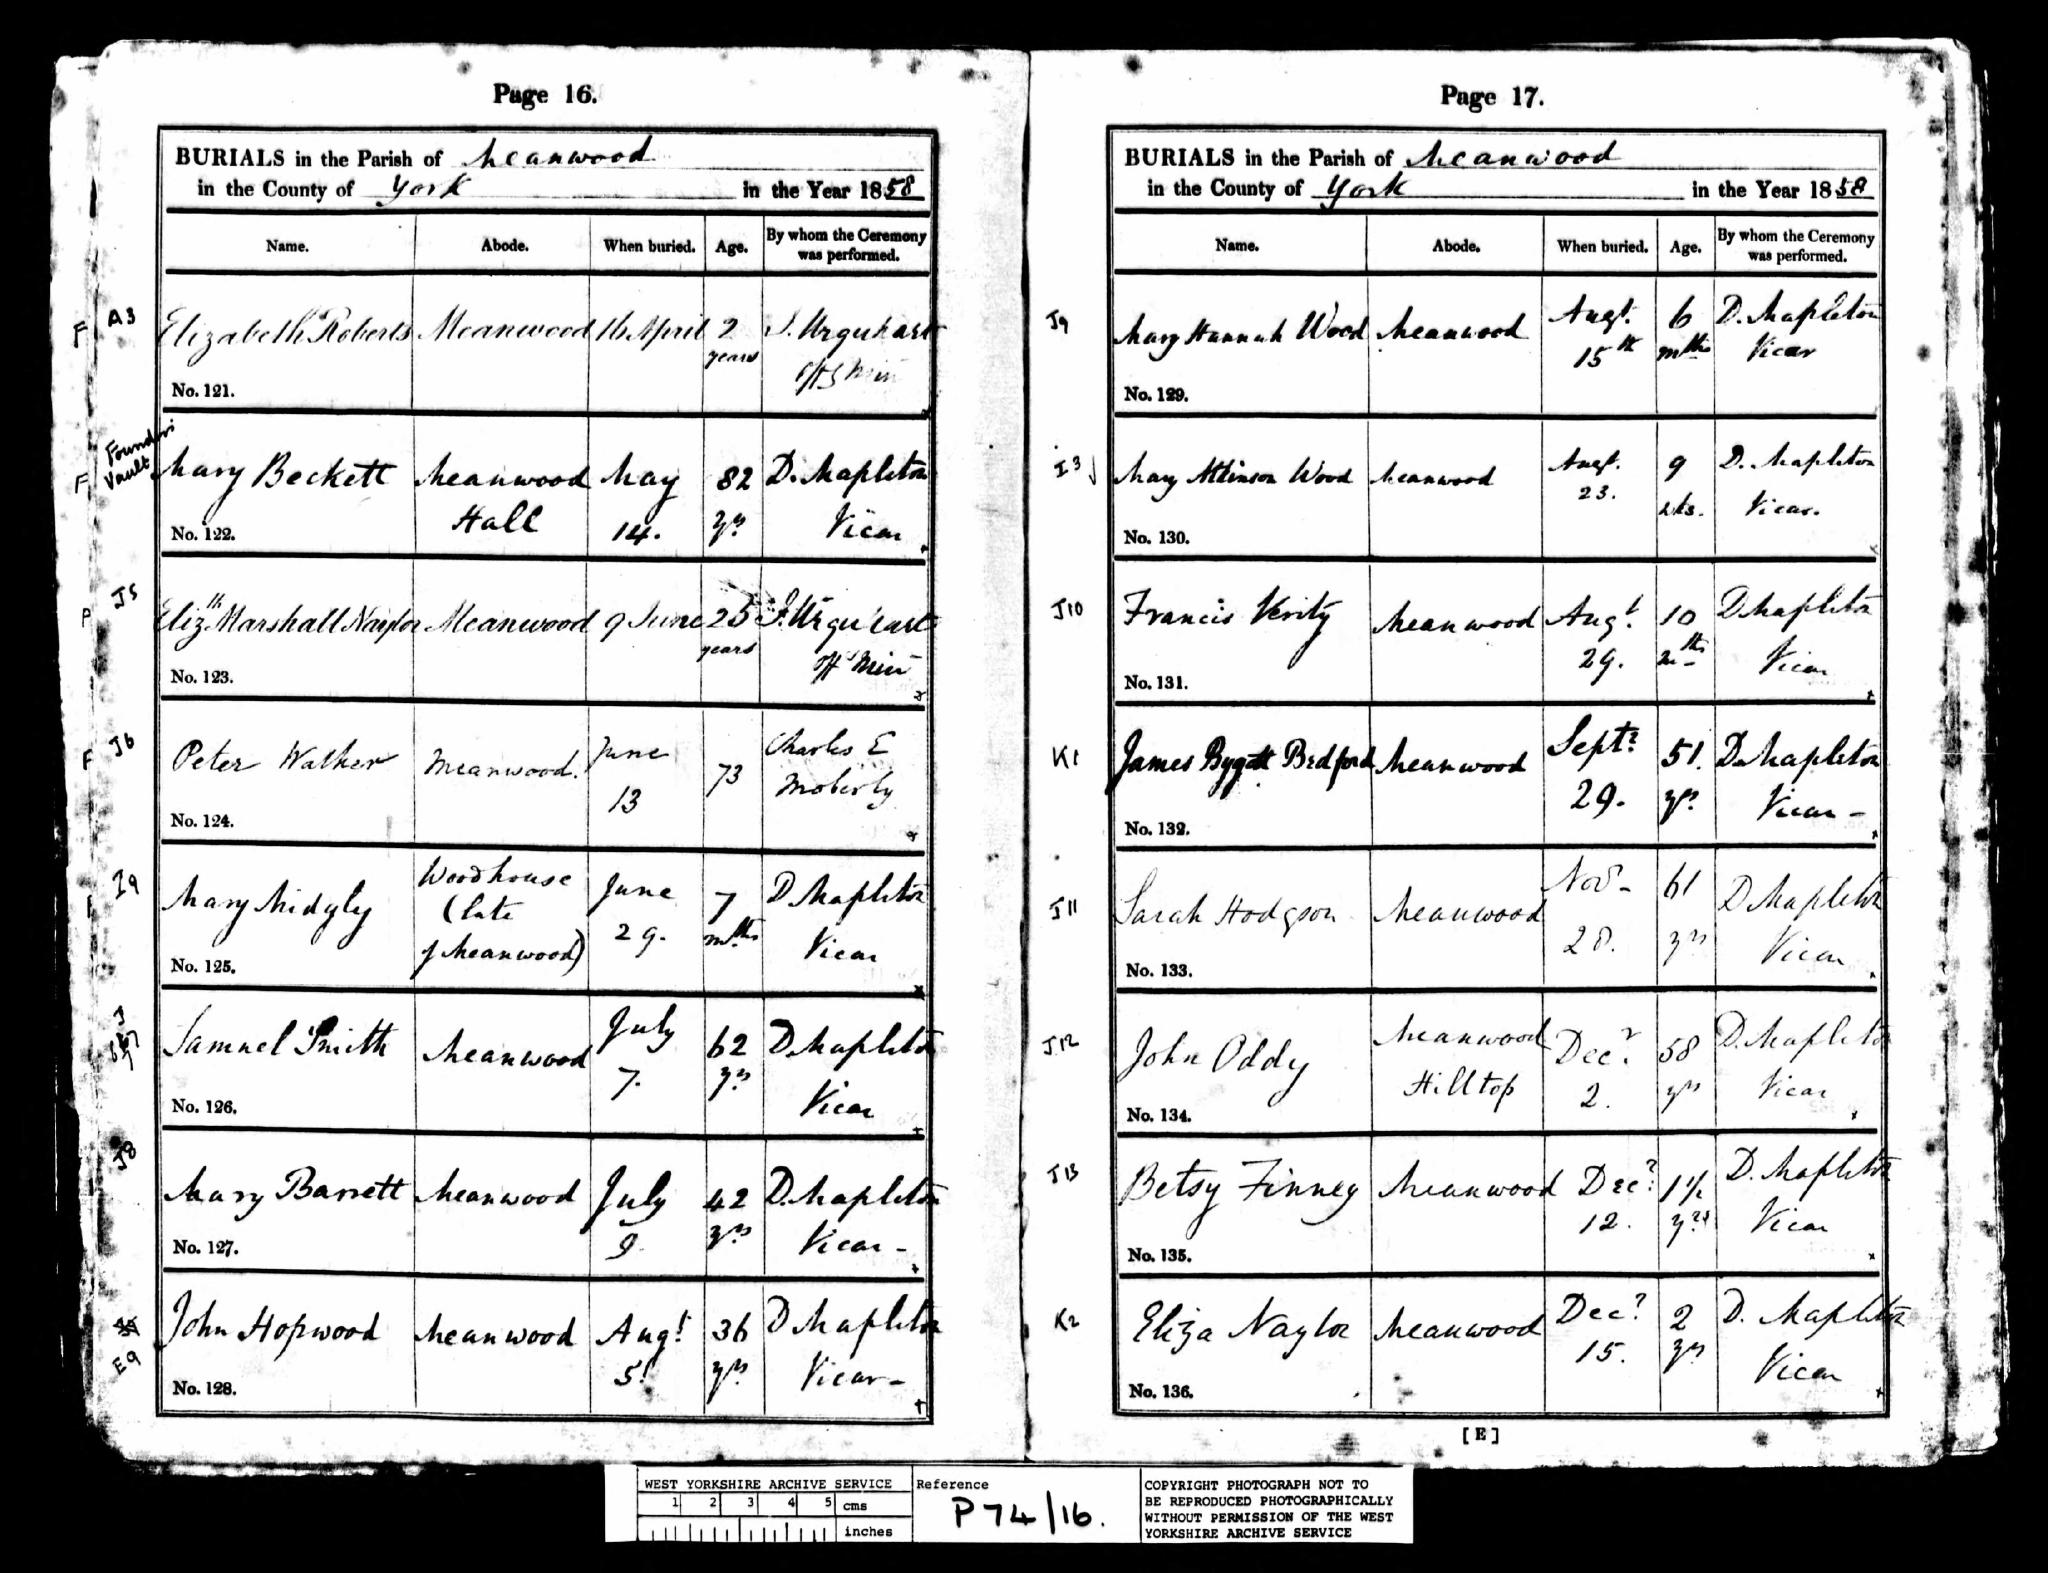 Page 16.
BURIALS in the Parish of Meanwood
in the County of York in the Year 1858
Name. Abode. When buried. Age. By whom the Ceremony was performed.
A3
F
Elizabeth Roberts Meanwood 16 April 2 years J. Urquhart Off Min
No. 121.
Founders Vault
F
Mary Beckett Meanwood Hall May 14. 82 yrs D. Mapleton Vicar
No. 122.
J5
Elizth Marshall Naylor Meanwood 9 June 25 years J. Urquhart Off Min
No. 123.
J6
F
Peter Walker Meanwood. June 13 73 Charles E Moberly
No. 124.
I9
Mary Midgly Woodhouse (late of Meanwood) June 29. 7 mths D Mapleton Vicar
No. 125.
J
7
Samuel Smith Meanwood July 7. 62 yrs D Mapleton Vicar
No. 126.
J8
Mary Barrett Meanwood July 9 42 yrs D. Mapleton Vicar -
No. 127.
E9
John Hopwood Meanwood Augt 5. 36 yrs D Mapleton Vicar -
No. 128.
Page 17.
BURIALS in the Parish of Meanwood
in the County of York in the Year 1858
Name. Abode. When buried. Age. By whom the Ceremony was performed.
J9
Mary Hannah Wood Meanwood Augt. 15th 6 mths D. Mapleton Vicar
No. 129.
I3
Mary Atkinson Wood Meanwood Augt. 23. 9 wks. D. Mapleton Vicar.
No. 130.
J10
Francis Verity Meanwood Augt 29. 10 mths D Mapleton Vicar
No. 131.
K1
James Bygott Bedford Meanwood Septr 29. 51. yrs D. Mapleton Vicar -
No. 132.
J11
Sarah Hodgson Meanwood Novr 28. 61 yrs D Mapleton Vicar
No. 133.
J12
John Oddy Meanwood Hilltop Decr. 2. 58 yrs D. Mapleton Vicar
No. 134.
J13
Betsy Finney Meanwood Decr 12. 1½ yrs D. Mapleton Vicar
No. 135.
K2
Eliza Naylor Meanwood Decr 15. 2 yrs D. Mapleton Vicar
No. 136.
[E]
WEST YORKSHIRE ARCHIVE SERVICE
1 2 3 4 5 cms
inches
Reference
P74/16.
COPYRIGHT PHOTOGRAPH NOT TO
BE REPRODUCED PHOTOGRAPHICALLY
WITHOUT PERMISSION OF THE WEST
YORKSHIRE ARCHIVE SERVICE